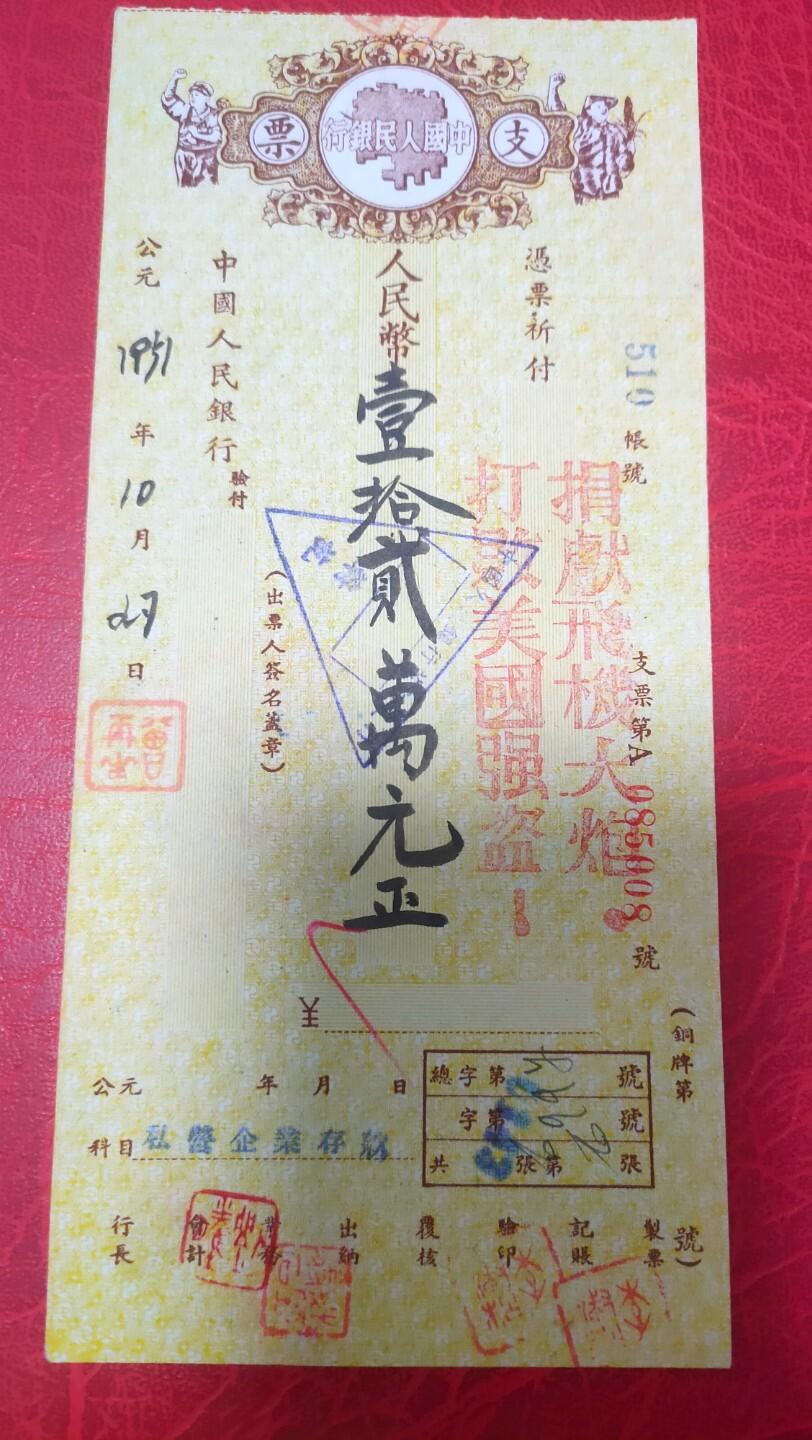 支票
中國人民銀行
510 帳號
支票第A 085008 號
(銅牌第
號)
捐獻飛機大炮!
打敗美國强盗!
憑票祈付
人民幣壹拾貳萬元正
¥
(出票人簽名蓋章)
中國人民銀行驗付
公元1951年10月27日
總字第 號
字第 號
共 張第 張
公元 年 月 日
科目 私營企業存款
製票
記賬
驗印
覆核
出納
業務
會計
行長